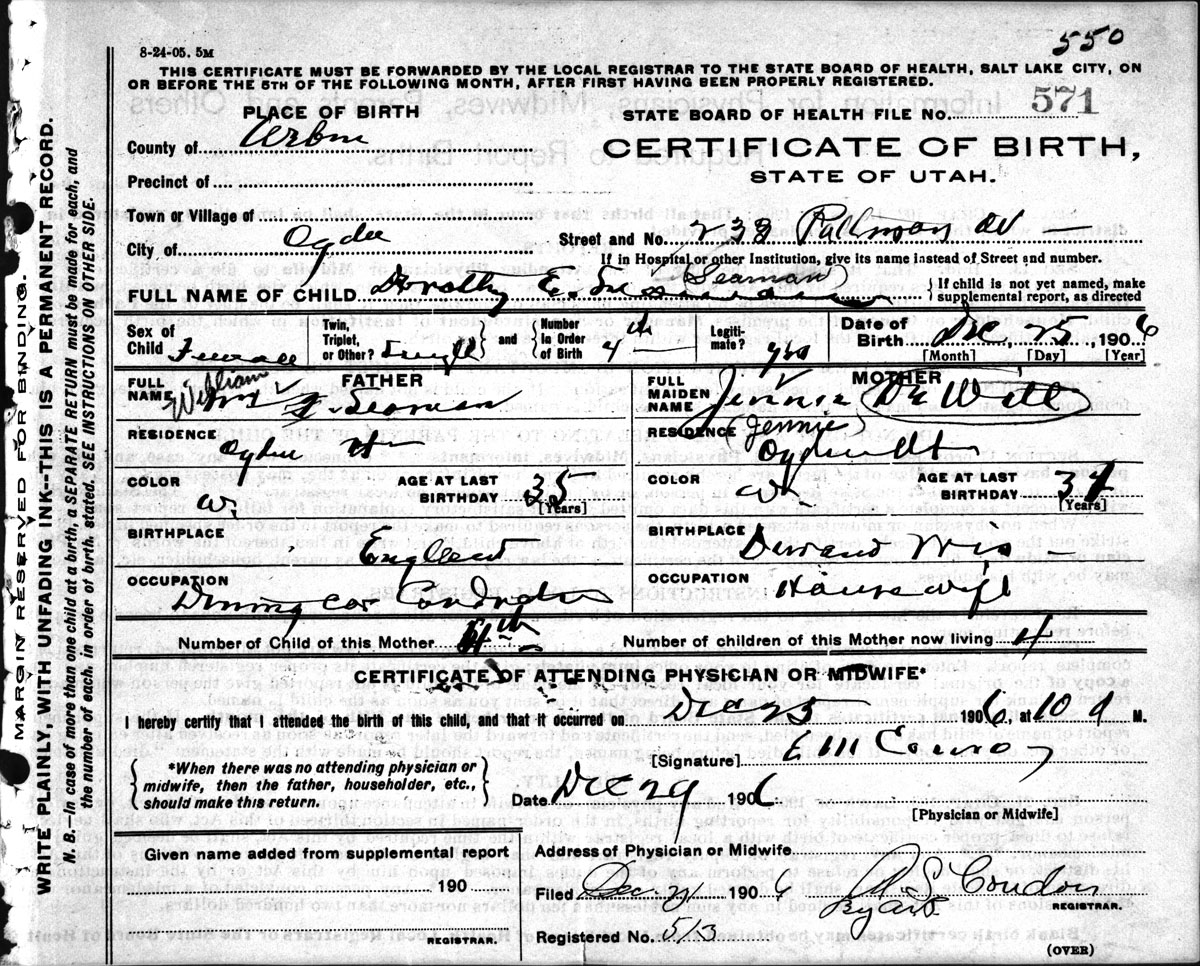 550
8-24-05. 5M
THIS CERTIFICATE MUST BE FORWARDED BY THE LOCAL REGISTRAR TO THE STATE BOARD OF HEALTH, SALT LAKE CITY, ON
OR BEFORE THE 5TH OF THE FOLLOWING MONTH, AFTER FIRST HAVING BEEN PROPERLY REGISTERED.
PLACE OF BIRTH
STATE BOARD OF HEALTH FILE No. 571
County of
CERTIFICATE OF BIRTH,
STATE OF UTAH.
Precinct of
Town or Village of
City of Ogden
Street and No. 238
If in Hospital or other Institution, give its name instead of Street and number.
Seaman
FULL NAME OF CHILD Dorothy E.
{If child is not yet named, make supplemental report, as directed
Sex of Child Female
Twin, Triplet, or Other? Single } and { Number in Order of Birth 4th
Legitimate? yes
Date of Birth Dec 25, 1906
[Month] [Day] [Year]
FATHER
FULL NAME William Wm Seaman
RESIDENCE Ogden Ut
COLOR W.
AGE AT LAST BIRTHDAY 35
[Years]
BIRTHPLACE England
OCCUPATION Dining Car Conductor
MOTHER
FULL MAIDEN NAME Jennie De Witt
(Jennie)
RESIDENCE Ogden Ut
COLOR
AGE AT LAST BIRTHDAY
[Years]
BIRTHPLACE Durand Wis
OCCUPATION Housewife
Number of Child of this Mother 4th
Number of children of this Mother now living 4
CERTIFICATE OF ATTENDING PHYSICIAN OR MIDWIFE*
I hereby certify that I attended the birth of this child, and that it occurred on Dec 25 1906, at 10 a M.
[Signature] E M Conroy
{ *When there was no attending physician or midwife, then the father, householder, etc., should make this return. }
Date Dec 29 1906
[Physician or Midwife]
Given name added from supplemental report
190
REGISTRAR.
Address of Physician or Midwife
Filed Dec. 1906 Condon
REGISTRAR.
Registered No. 513
(OVER)
MARGIN RESERVED FOR BINDING.
WRITE PLAINLY, WITH UNFADING INK--THIS IS A PERMANENT RECORD.
N. B. In case of more than one child at a birth, a SEPARATE RETURN must be made for each, and
the number of each, in order of birth, stated. SEE INSTRUCTIONS ON OTHER SIDE.